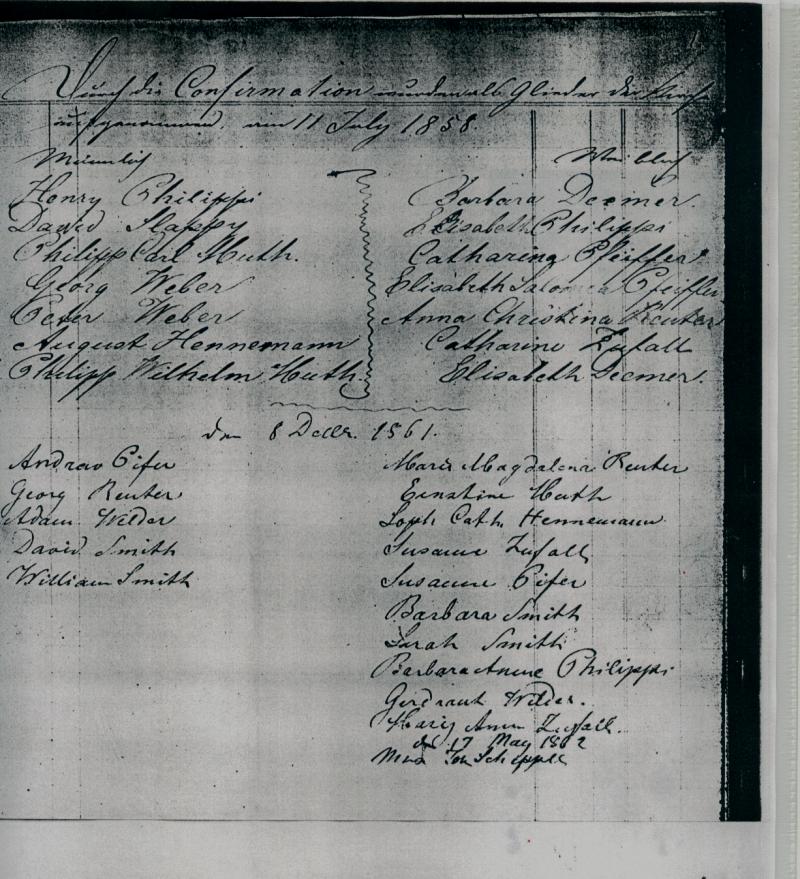 Durch die Confirmation wurden als Glieder der Kirch
aufgenommen, am 11 July 1858.
Männlich
Weiblich
Henry Philippi
Barbara Deemer.
David Slappy
Elisabeth Philippi
Philipp Carl Huth.
Catharina Pfeiffer
Georg Weber
Elisabeth Salomea Pfeiffer
Peter Weber
Anna Christina Reuter
August Hennemann
Catharine Zufall
Philipp Wilhelm Huth.
Elisabeth Deemer.
den 8 Decbr. 1861.
Andrew Pifer
Maria Magdalena Reuter
Georg Reuter
Ernstine Huth
Adam Wilder
Soph. Cath. Hennemann
David Smith
Susanne Zufall
William Smith
Susanne Pifer
Barbara Smith
Sarah Smith
Barbara Anne Philippi
Gerdraut Wilder.
Mary Ann Zufall.
den 17 May 1862